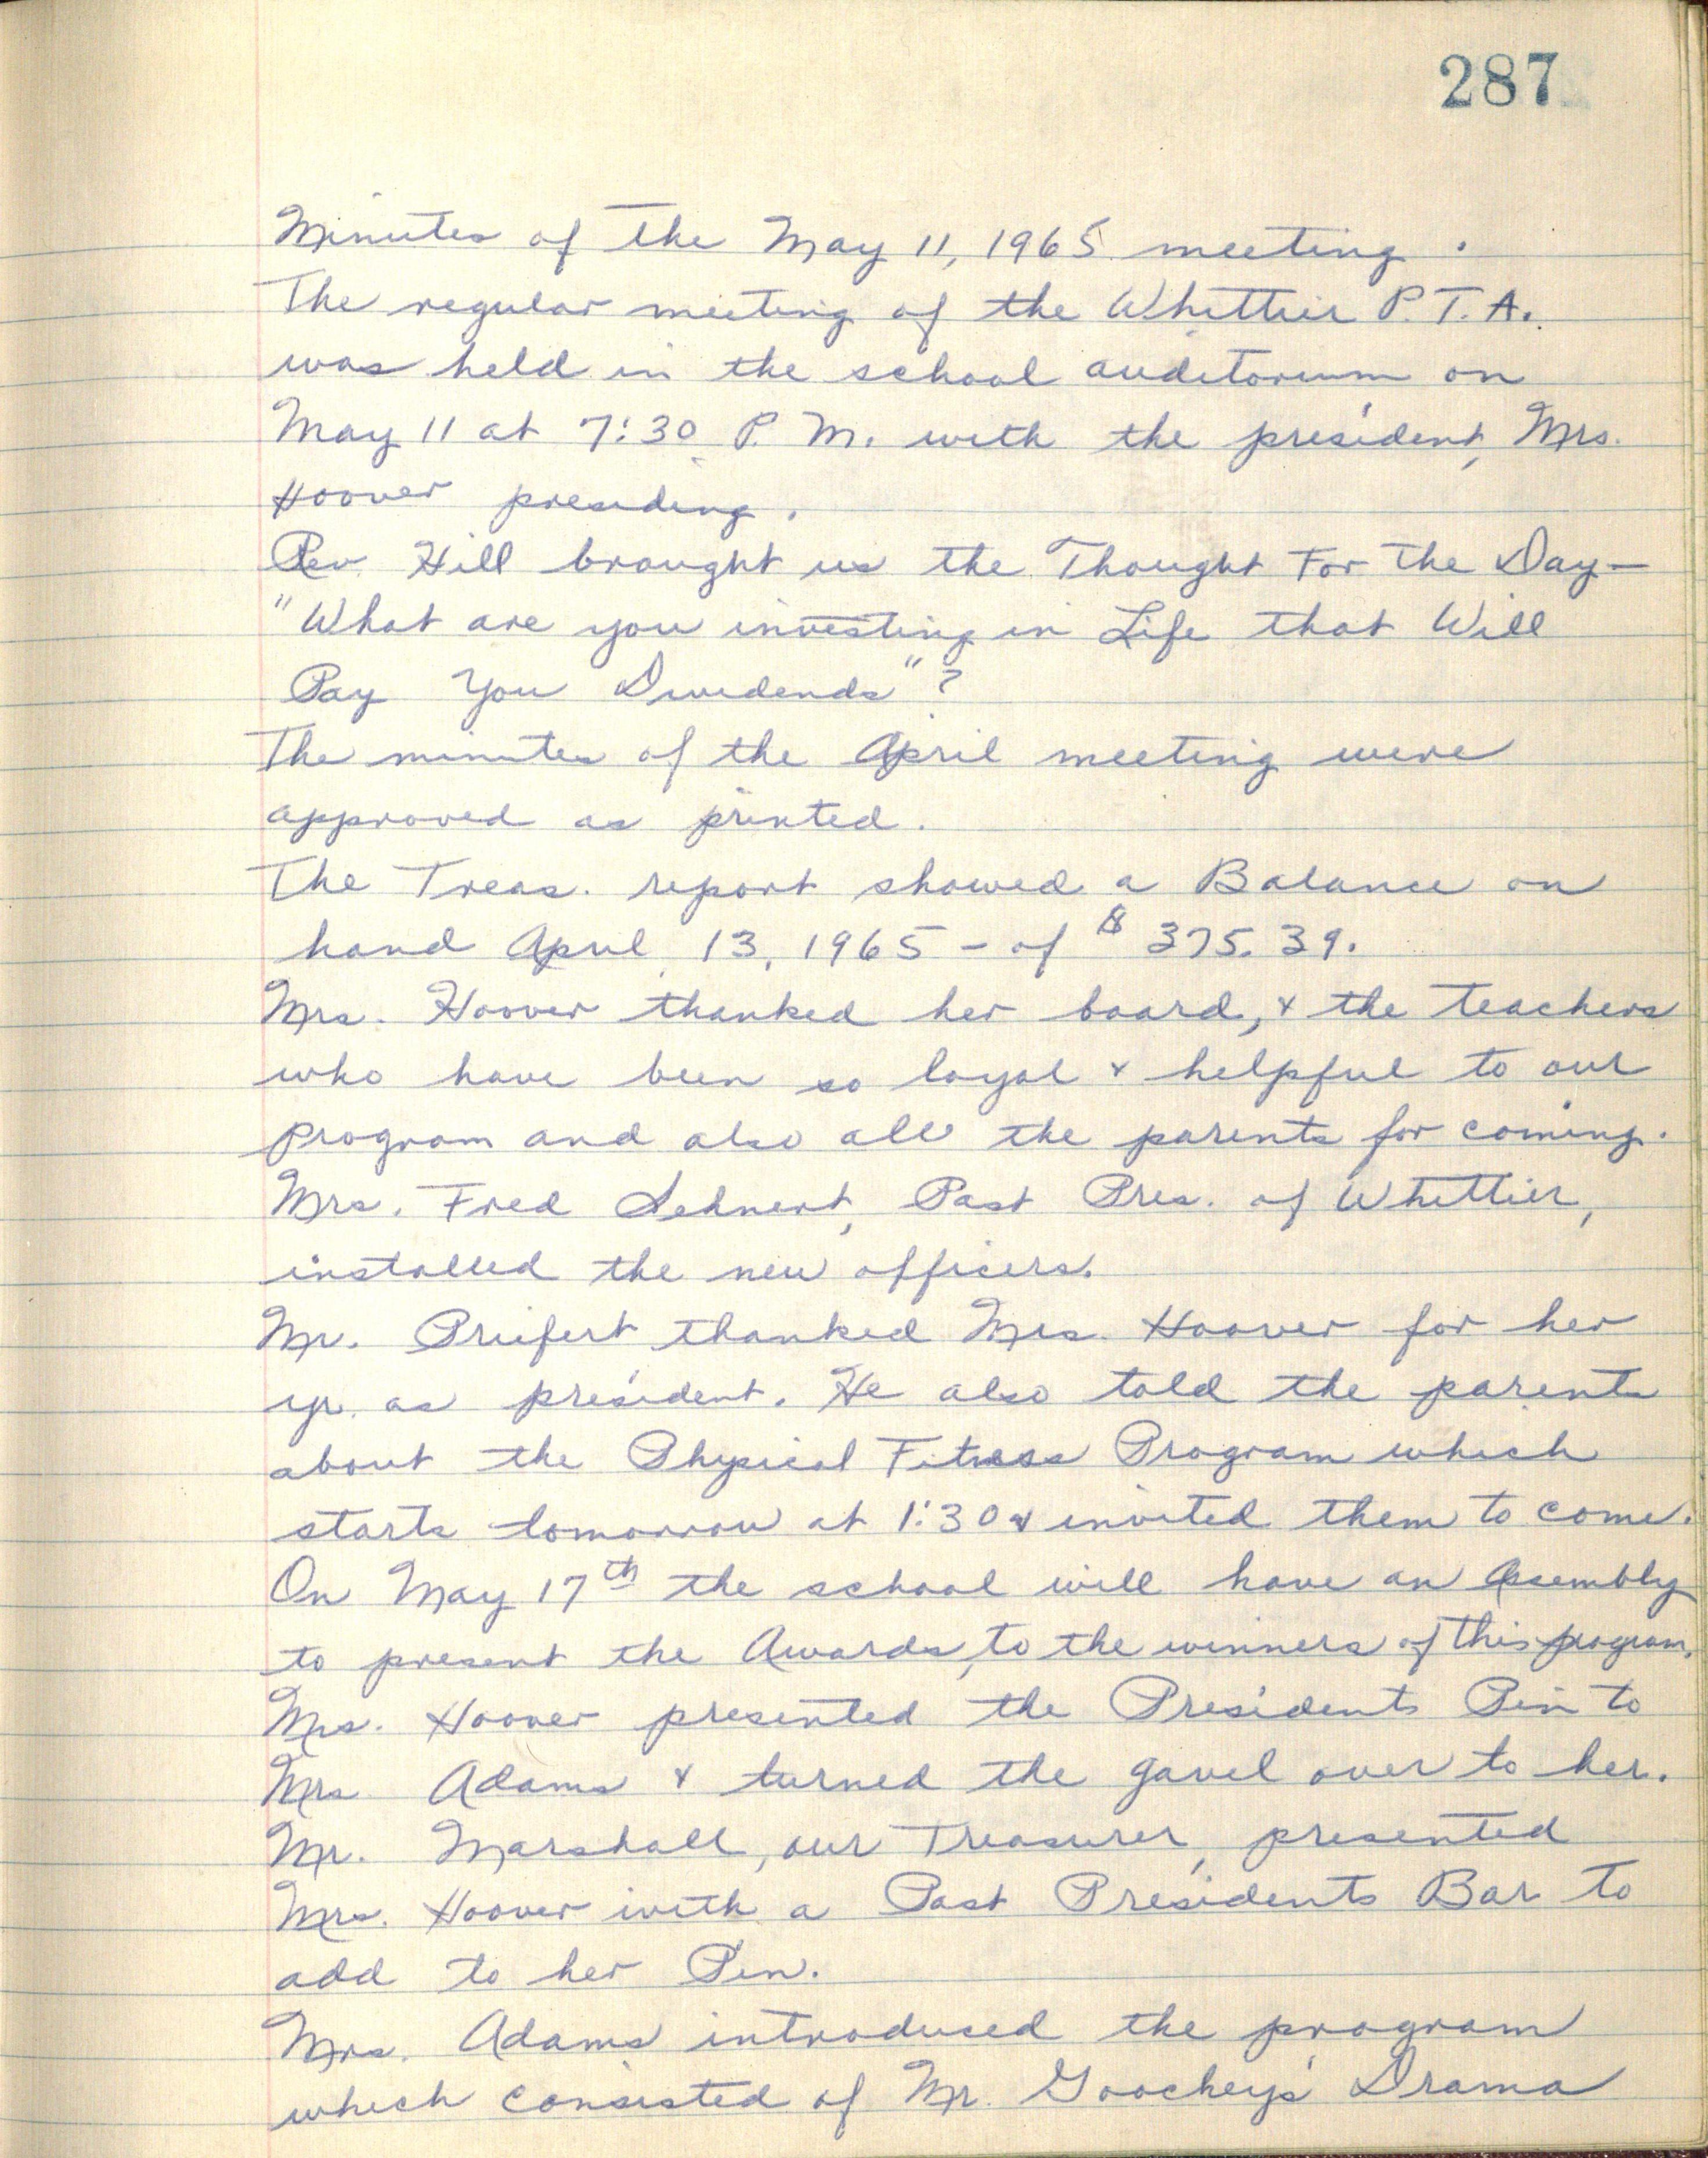 287
Minutes of the May 11, 1965 meeting.
The regular meeting of the Whittier P.T.A.
was held in the school auditorium on
May 11 at 7:30 P.M. with the president, Mrs.
Hoover presiding.
Rev. Hill brought us the Thought For the Day—
"What are you investing in Life that Will
Pay You Dividends"?
The minutes of the April meeting were
approved as printed.
The Treas. report showed a Balance on
hand April 13, 1965 - of $375.39.
Mrs. Hoover thanked her board, & the teachers
who have been so loyal & helpful to our
program and also all the parents for coming.
Mrs. Fred Sehnert, Past Pres. of Whittier,
installed the new officers.
Mr. Priefert thanked Mrs. Hoover for her
yr. as president. He also told the parents
about the Physical Fitness Program which
starts tomorrow at 1:30 & invited them to come.
On May 17th the school will have an Assembly
to present the Awards, to the winners of this program.
Mrs. Hoover presented the Presidents Pin to
Mrs Adams & turned the gavel over to her.
Mr. Marshall, our Treasurer, presented
Mrs. Hoover with a Past Presidents Bar to
add to her Pin.
Mrs. Adams introduced the program
which consisted of Mr. Goochey's Drama